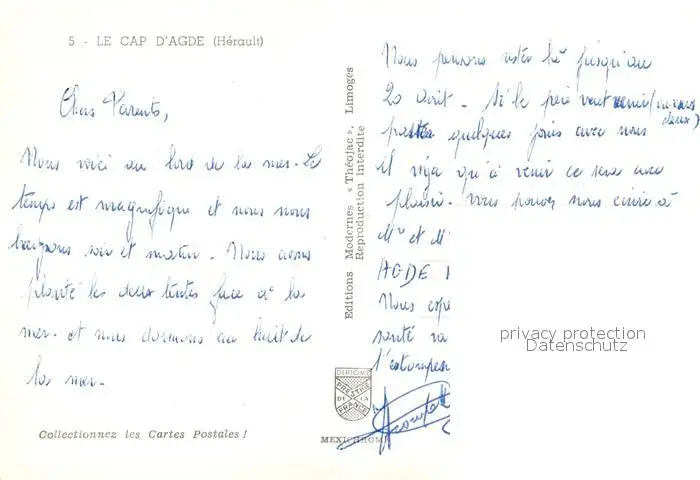 5 - LE CAP D'AGDE (Hérault)
Chers Parents,
Nous voici au bord de la mer. Le
temps est magnifique et nous nous
baignons soir et matin. Nous avons
planté les deux tentes face à la
mer. et nous dormons au bruit de
la mer.
Collectionnez les Cartes Postales !
Editions Modernes "Théojac", Limoges
Reproduction Interdite
DIPLOME
PRESTIGE
DE LA
FRANCE
MEXICHROME
Nous pensons rester là jusqu'au
20 Août. Si le père veut venir (ou vous
deux)
passer quelques jours avec nous
il n'y a qu'à venir ce sera avec
plaisir. Vous pouvez nous écrire à
Mr et M
AGDE
Nous
santé
privacy protection
Datenschutz